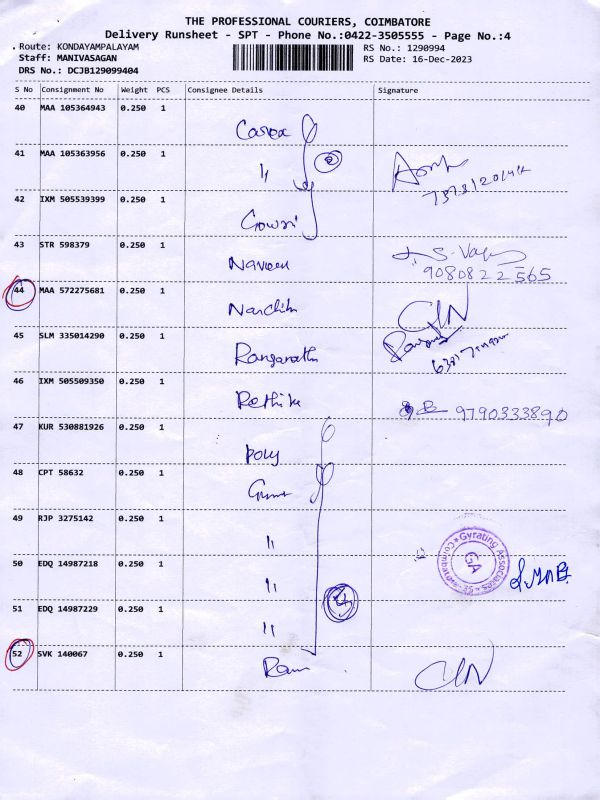 THE PROFESSIONAL COURIERS, COIMBATORE
Delivery Runsheet - SPT - Phone No.:0422-3505555 - Page No.:4
Route: KONDAYAMPALAYAM
RS No.: 1290994
Staff: MANIVASAGAN
RS Date: 16-Dec-2023
DRS No.: DCJB129099404
S No Consignment No Weight PCS Consignee Details Signature
40 MAA 105364943 0.250 1
41 MAA 105363956 0.250 1 "
42 IXM 505539399 0.250 1 Gowri
43 STR 598379 0.250 1 Naveen
9080822565
44 MAA 572275681 0.250 1
45 SLM 335014290 0.250 1
46 IXM 505509350 0.250 1 Rethika 9790333890
47 KUR 530881926 0.250 1 poly
48 CPT 58632 0.250 1
49 RJP 3275142 0.250 1 "
Gyrating Associates
GA
Coimbatore-35
50 EDQ 14987218 0.250 1 "
51 EDQ 14987229 0.250 1 "
52 SVK 140067 0.250 1 Ram